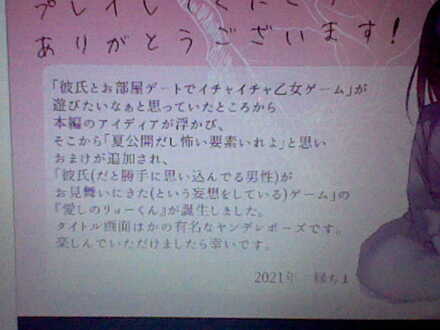 プレイしてくださり
ありがとうございます!
「彼氏とお部屋デートでイチャイチャ乙女ゲーム」が
遊びたいなぁと思っていたところから
本編のアイディアが浮かび、
そこから「夏公開だし怖い要素いれよ」と思い
おまけが追加され、
「彼氏(だと勝手に思い込んでる男性)が
お見舞いにきた(という妄想をしている)ゲーム」の
『愛しのリョーくん』が誕生しました。
タイトル画面はかの有名なヤンデレポーズです。
楽しんでいただけましたら幸いです。
2021年 縁ちま